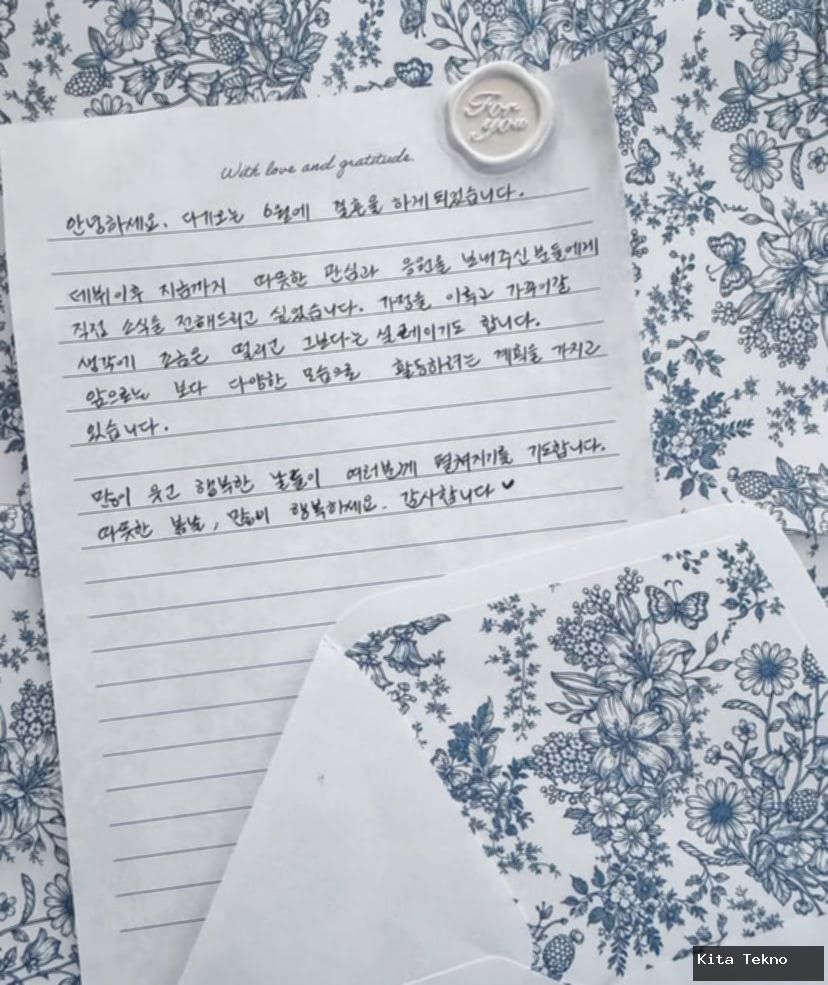 For you
With love and gratitude.
안녕하세요. 다가오는 6월에 결혼을 하게 되었습니다.
데뷔 이후 지금까지 따뜻한 관심과 응원을 보내주신 분들에게
직접 소식을 전해드리고 싶었습니다. 가정을 이루고 가꾸어갈
생각에 조금은 떨리고 그보다는 설레이기도 합니다.
앞으로는 보다 다양한 모습으로 활동하려는 계획을 가지고
있습니다.
많이 웃고 행복한 날들이 여러분께 펼쳐지기를 기도합니다.
따뜻한 봄날, 많이 행복하세요. 감사합니다 ♥
Kita Tekno